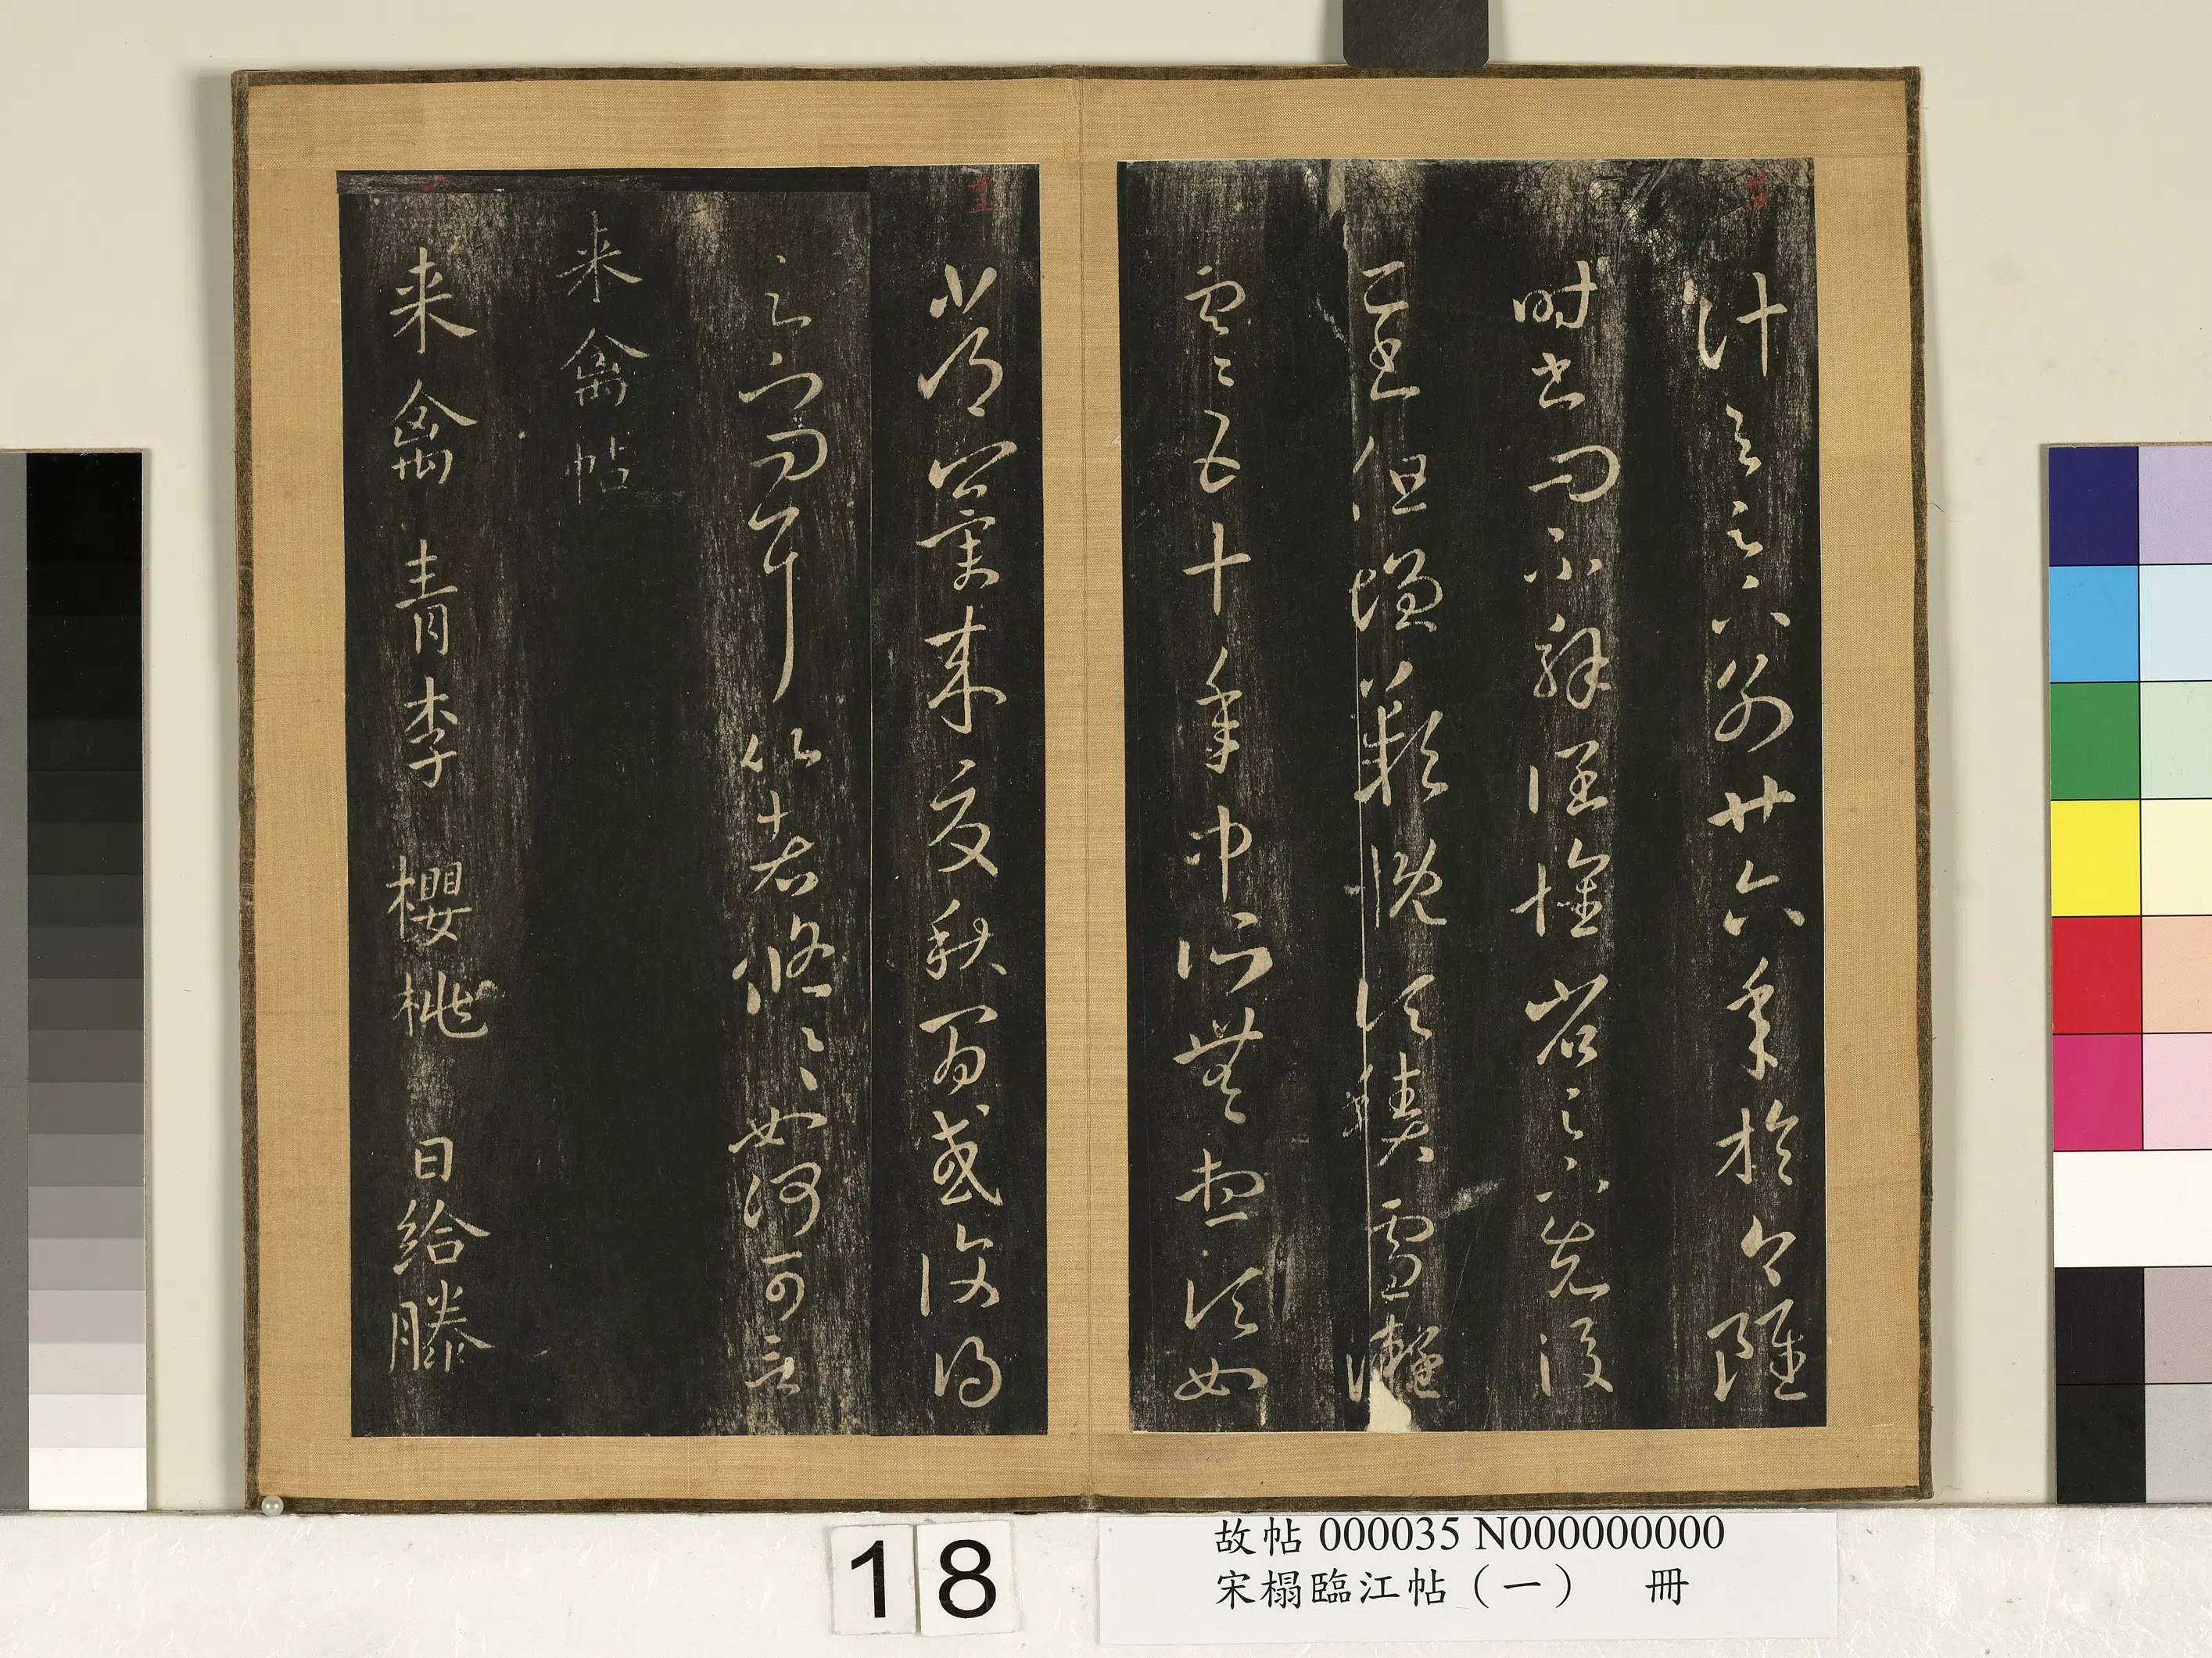 計與足下別廿六年於今雖
時書問不解闊懷省足下先後
二書但增歎慨頃積雪凝
寒五十年中所無想頃如
常冀來夏秋間或復得
足下問耳比者悠悠如何可言
来禽帖
来禽青李櫻桃日給滕
18
故帖 000035 N000000000
宋榻臨江帖（一） 冊